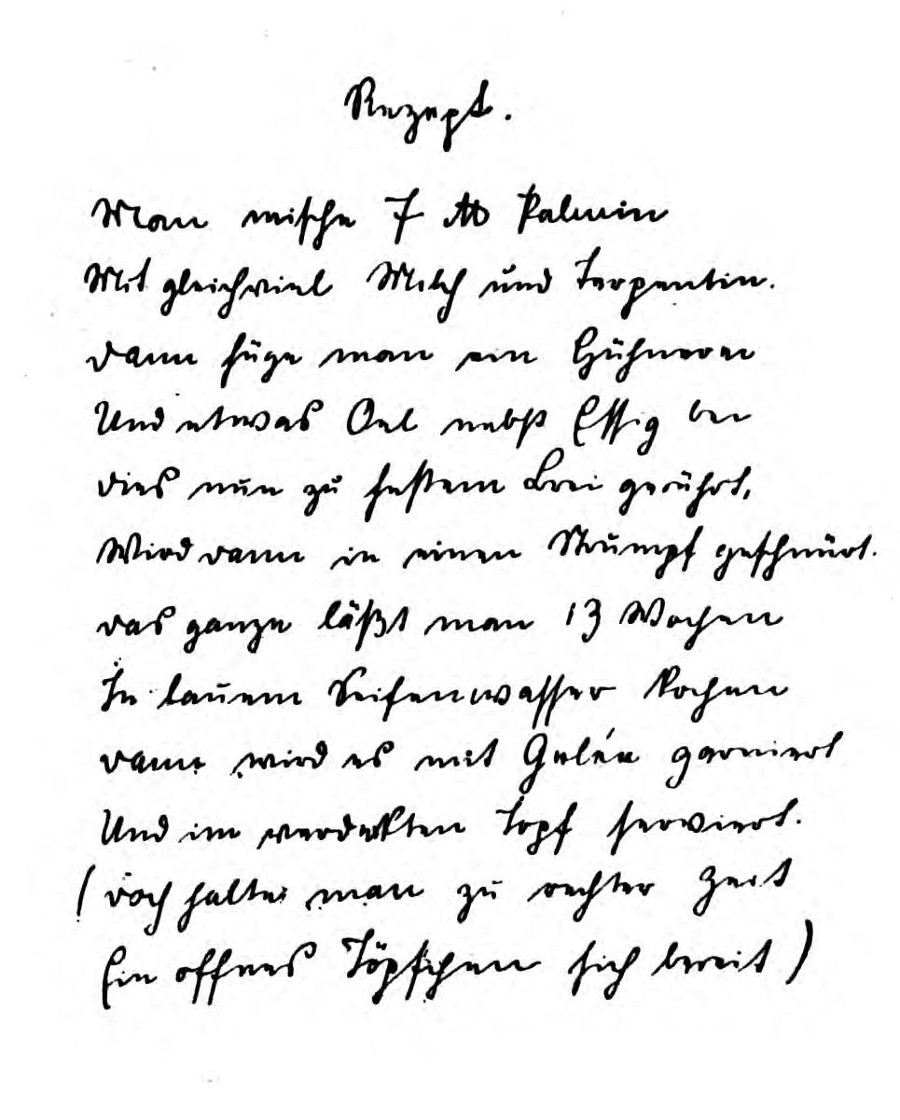 Rezept.
Man mische 7 ℔ Palmin
Mit gleichviel Milch und Terpentin.
Dann füge man ein Hühnerei
Und etwas Oel nebst Essig bei
Dies nun zu festem Brei gerührt,
Wird dann in einen Strumpf geschnürt.
Das ganze läßt man 13 Wochen
In lauem Seifenwasser kochen
Dann wird es mit Gelée garniert
Und im verdeckten Topf serviert.
(Doch halte man zu rechter Zeit
Ein offnes Töpfchen sich bereit)